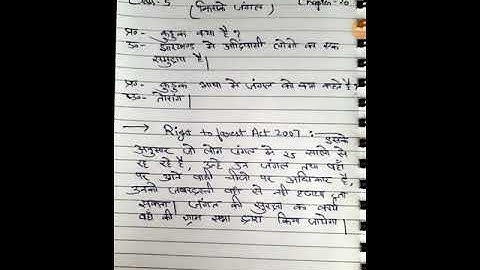 Class-5 (किसके जंगल) Chapter-20
प्र०- कुडुक क्या है?
उ०- झारखण्ड में आदिवासी लोगों का एक
समुदाय है।
प्र०- कुडुक भाषा में जंगल को क्या कहते हैं?
उ०- तोरांग।
→ Right to forest Act 2007 :- इसके
अनुसार जो लोग जंगल में 25 सालों से
रह रहे हैं, उन्हें उन जंगल तथा वहाँ
पर उगने वाली चीजों पर अधिकार है,
उनको जबरदस्ती वहाँ से नहीं हटाया जा
सकता। जंगल की सुरक्षा का कार्य
वहाँ की ग्राम सभा द्वारा किया जायेगा।